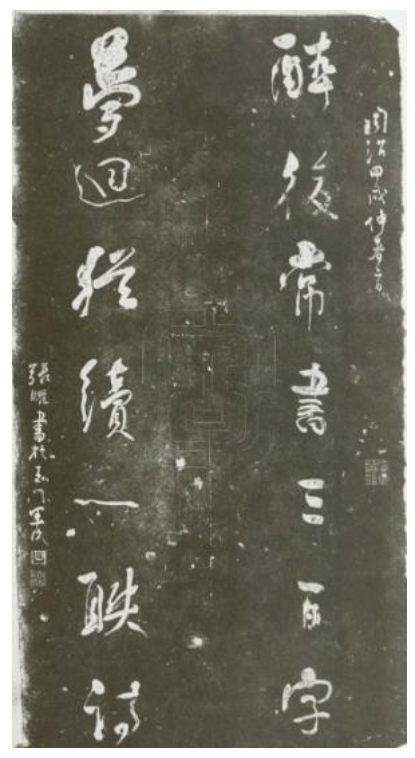 同治甲戌仲春月
醉後常書三百字
夢迴猶續一聯詩
張曜書於玉門軍次